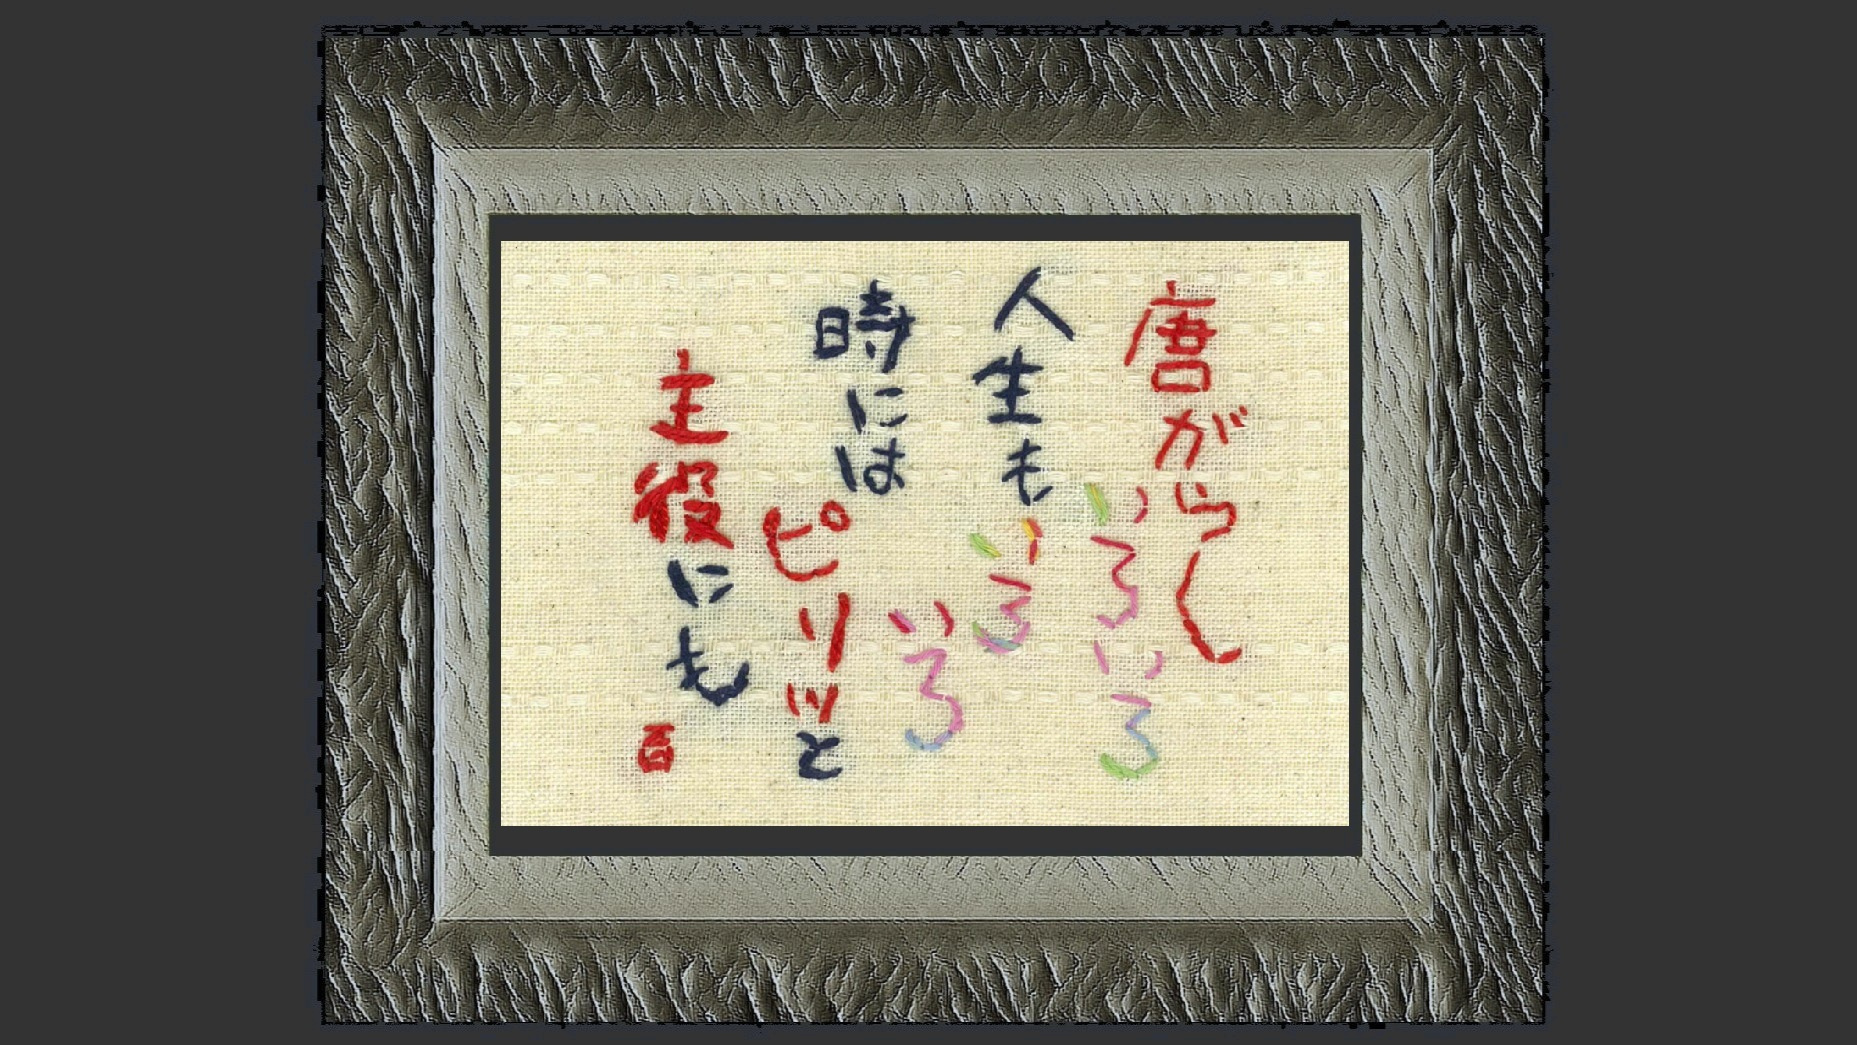 唐がらし
いろいろ
人生も
いろ
いろ
時には
ピリッと
主役にも
百